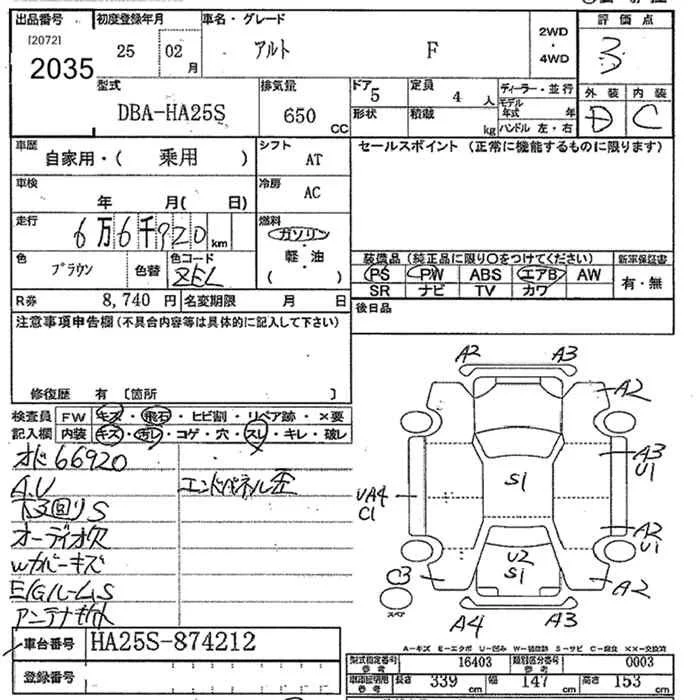 出品番号 初度登録年月 車名・グレード 2WD・4WD 評価点
[2072]
2035 25 02月 アルト F 3
型式 排気量 ドア 定員 ディーラー・並行 外装 内装
DBA-HA25S 650CC 5 4人 モデル年式 年 D C
形状 積載 kg ハンドル 左・右
車歴 自家用・( 乗用 ) シフト AT セールスポイント (正常に機能するものに限ります)
車検 年 月( 日) 冷房 AC
走行 6万6千920km 燃料 ガソリン・軽・油( )
色 ブラウン 色替 色コード ZEL
装備品 (純正品に限り○をつけてください) 新車保証書
PS PW ABS エアB AW 有・無
SR ナビ TV カワ
R券 8,740円 名変期限 月 日 後日品
注意事項申告欄(不具合内容等は具体的に記入して下さい)
修復歴 有 〔箇所 〕
検査員 FW キズ・飛石・ヒビ割・リペア跡・×要
記入欄 内装 キズ・汚レ・コゲ・穴・スレ・キレ・破レ
オド66920
A.U エンドパネル歪
下3回リS
オーディオ欠
Wカバーキズ
E/GルームS
アンテナ
A2 A3
A2
A3
U1
S1
UA4
C1
A2
U1
U2
S1
C3
A2
スペア
A4 A3
A-キズ E-エクボ U-凹み W-補修跡 S-サビ C-腐食 ××-交換済
車台番号 HA25S-874212
型式指定番号 参考 16403 類別区分番号 参考 0003
登録番号
車検証明用 参考 長さ 339cm 幅 147cm 高さ 153cm